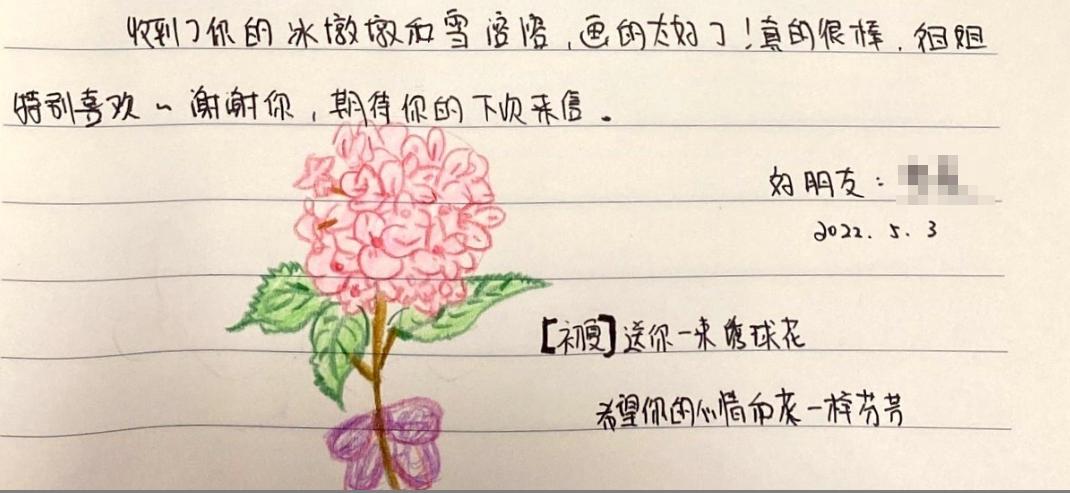 收到了你的冰墩墩和雪容溶,画的太好了!真的很棒,姐姐
特别喜欢~谢谢你,期待你的下次来信。
好朋友:
2022.5.3
【初夏】送你一束绣球花
希望你的心情如花一样芬芳